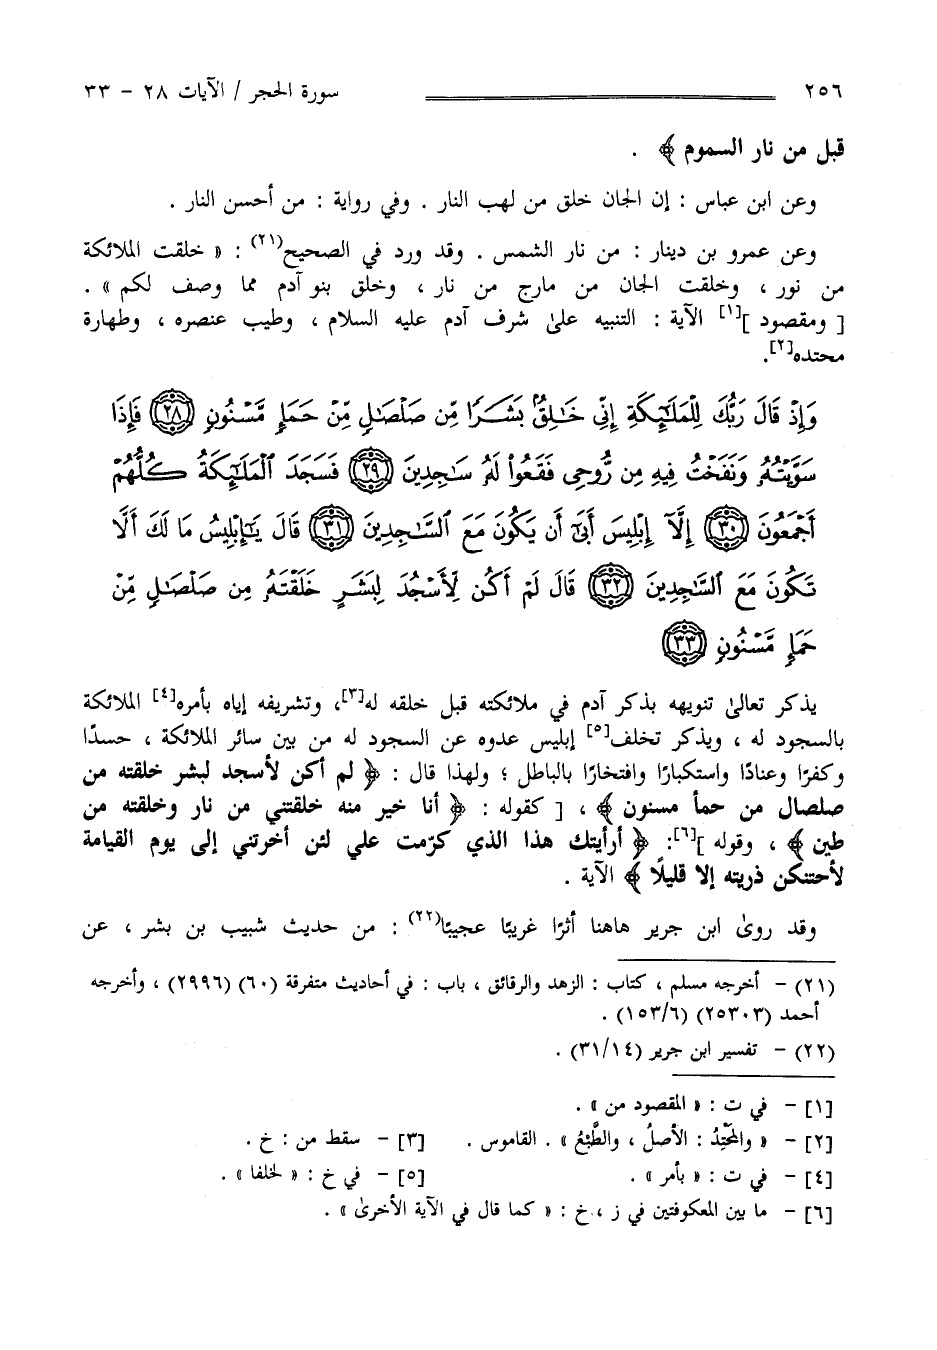 ٢٥٦ سورة الحجر / الآيات ٢٨ - ٣٣
قبل من نار السموم ﴾ .
وعن ابن عباس : إن الجان خلق من لهب النار . وفي رواية : من أحسن النار .
وعن عمرو بن دينار : من نار الشمس . وقد ورد في الصحيح(٢١) : « خلقت الملائكة
من نور ، وخلقت الجان من مارج من نار ، وخلق بنو آدم مما وصف لكم » .
[ ومقصود ][١] الآية : التنبيه علىٰ شرف آدم عليه السلام ، وطيب عنصره ، وطهارة
محتده[٢].
وَإِذْ قَالَ رَبُّكَ لِلْمَلَٰٓئِكَةِ إِنِّى خَٰلِقٌۢ بَشَرًا مِّن صَلْصَٰلٍ مِّنْ حَمَإٍ مَّسْنُونٍ ﴿٢٨﴾ فَإِذَا
سَوَّيْتُهُۥ وَنَفَخْتُ فِيهِ مِن رُّوحِى فَقَعُوا۟ لَهُۥ سَٰجِدِينَ ﴿٢٩﴾ فَسَجَدَ ٱلْمَلَٰٓئِكَةُ كُلُّهُمْ
أَجْمَعُونَ ﴿٣٠﴾ إِلَّآ إِبْلِيسَ أَبَىٰٓ أَن يَكُونَ مَعَ ٱلسَّٰجِدِينَ ﴿٣١﴾ قَالَ يَٰٓإِبْلِيسُ مَا لَكَ أَلَّا
تَكُونَ مَعَ ٱلسَّٰجِدِينَ ﴿٣٢﴾ قَالَ لَمْ أَكُن لِّأَسْجُدَ لِبَشَرٍ خَلَقْتَهُۥ مِن صَلْصَٰلٍ مِّنْ
حَمَإٍ مَّسْنُونٍ ﴿٣٣﴾
يذكر تعالىٰ تنويهه بذكر آدم في ملائكته قبل خلقه له[٣]، وتشريفه إياه بأمره[٤] الملائكة
بالسجود له ، ويذكر تخلف[٥] إبليس عدوه عن السجود له من بين سائر الملائكة ، حسدًا
وكفرًا وعنادًا واستكبارًا وافتخارًا بالباطل ؛ ولهذا قال : ﴿ لم أكن لأسجد لبشر خلقته من
صلصال من حمأ مسنون ﴾ ، [ كقوله : ﴿ أنا خير منه خلقتني من نار وخلقته من
طين ﴾ ، وقوله ][٦]: ﴿ أرأيتك هذا الذي كرّمت علي لئن أخرتني إلى يوم القيامة
لأحتنكن ذريته إلا قليلًا ﴾ الآية .
وقد روىٰ ابن جرير هاهنا أثرًا غريبًا عجيبًا(٢٢) : من حديث شبيب بن بشر ، عن
(٢١) - أخرجه مسلم ، كتاب : الزهد والرقائق ، باب : في أحاديث متفرقة (٦٠) (٢٩٩٦) ، وأخرجه
أحمد (٢٥٣٠٣) (١٥٣/٦) .
(٢٢) - تفسير ابن جرير (٣١/١٤) .
[١] - في ت : « المقصود من » .
[٢] - « والمَحْتِدُ : الأصلُ ، والطَّبْعُ » . القاموس . [٣] - سقط من : خ .
[٤] - في ت : « بأمر » . [٥] - في خ : « لخلفا » .
[٦] - ما بين المعكوفتين في ز ، خ : « كما قال في الآية الأخرىٰ » .